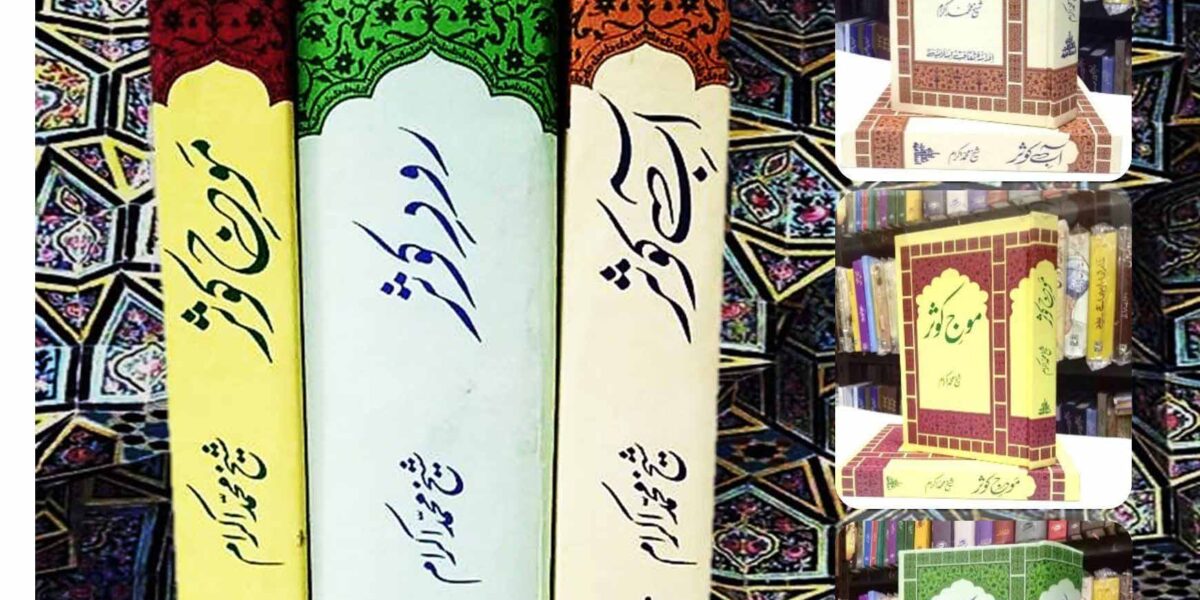 موجِ کوثر
شیخ محمد اکرام
رودِ کوثر
شیخ محمد اکرام
آبِ کوثر
شیخ محمد اکرام
شیخ محمد اکرام
ادارۂ ثقافتِ اسلامیہ
آبِ کوثر
شیخ محمد اکرام
موجِ کوثر
شیخ محمد اکرام
موجِ کوثر
شیخ محمد اکرام
موجِ کوثر
شیخ محمد اکرام